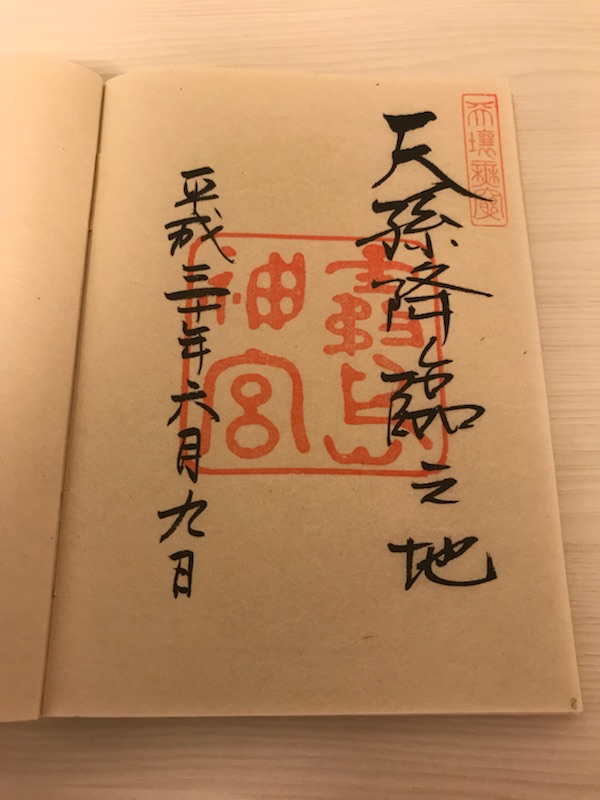 天壤無窮
天孫降臨之地
霧島
神宮
平成三十年六月九日